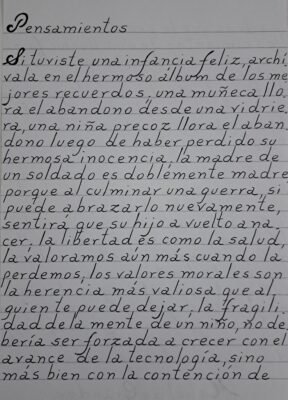 Pensamientos
Si tuviste una infancia feliz, archí
vala en el hermoso álbum de los me
jores recuerdos, una muñeca llo
ra el abandono desde una vidrie
ra, una niña precoz llora el aban
dono luego de haber perdido su
hermosa inocencia, la madre de
un soldado es doblemente madre
porque al culminar una guerra, si
puede abrazarlo nuevamente,
sentirá que su hijo a vuelto a na
cer, la libertad es como la salud,
la valoramos aún más cuando la
perdemos, los valores morales son
la herencia más valiosa que al
guien te puede dejar, la fragili
dad de la mente de un niño, no de
bería ser forzada a crecer con el
avance de la tecnología, sino
más bien con la contención de